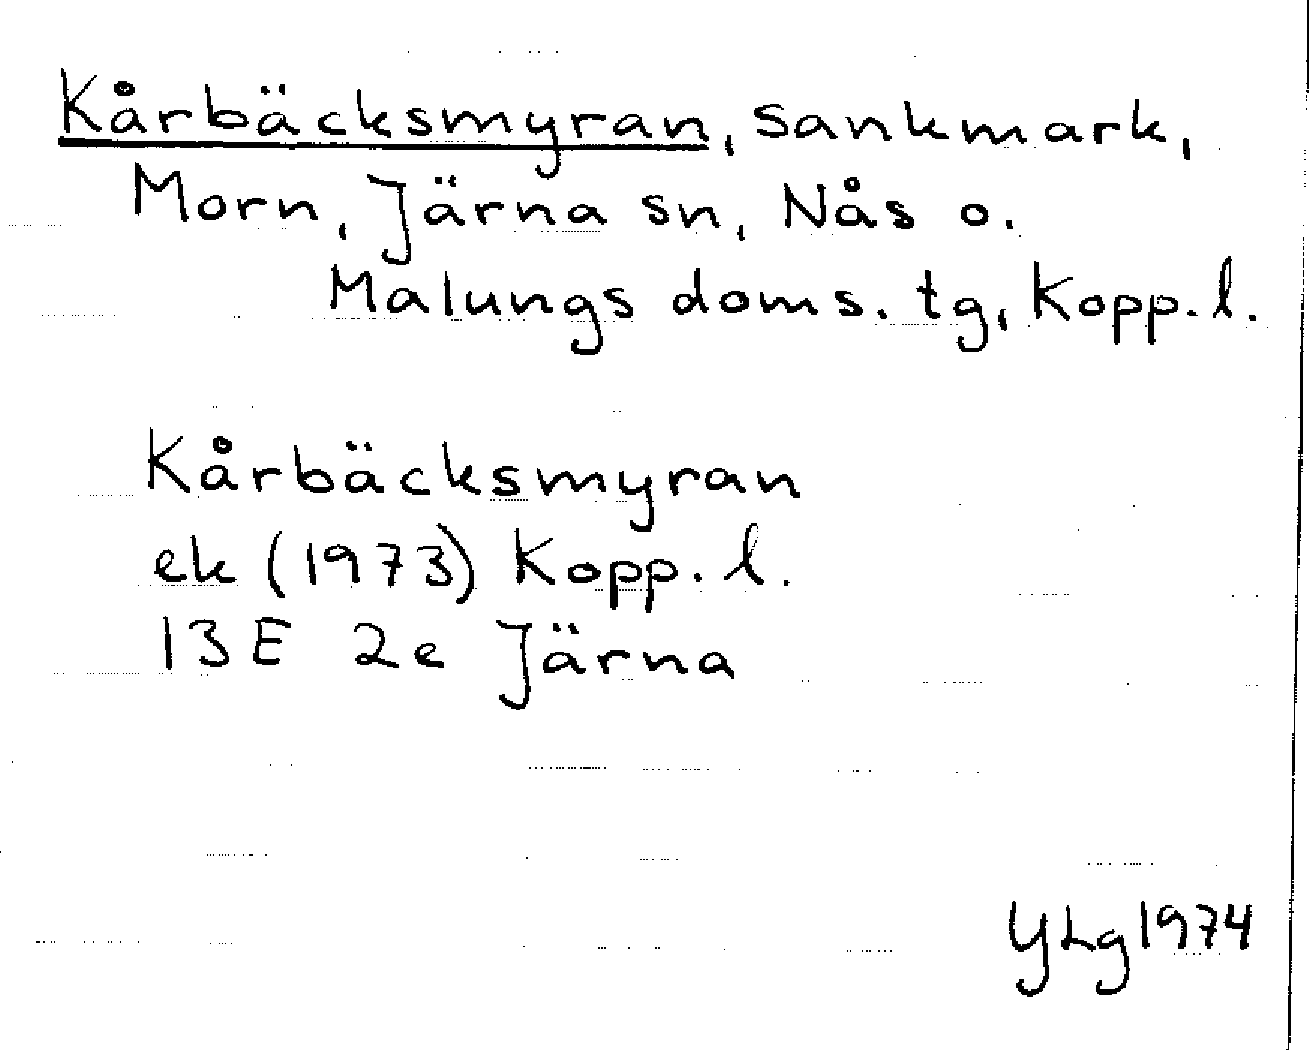 Kårbäcksmyran, sankmark,
Morn, Järna sn, Nås o.
Malungs doms. tg, Kopp. l.
Kårbäcksmyran
ek (1973) Kopp. l.
13E 2e Järna
YLg 1974